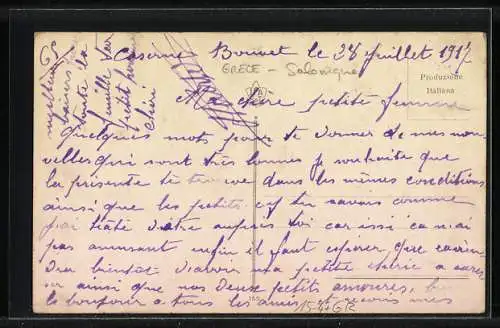 Caserne Bouvet le 28 juillet 1917
GRECE - Salonique
Produzione
Italiana
Ma chère petite femme
Quelques mots pour te donner de mes nou-
velles qui sont très bonnes je souhaite que
la présente te trouve dans les mêmes conditions
ainsi que les petits si tu savais comme
j'ai hâte d'être auprès toi car issi ca n'ai
pas amusant enfin il faut esperer que
bientôt d'avoir ma petite cherie a
ainsi que nos deux petits amours,
le bonjour a tous les amis et recois mes
milliers
baisers
toute la
famille
petit homme
cheri